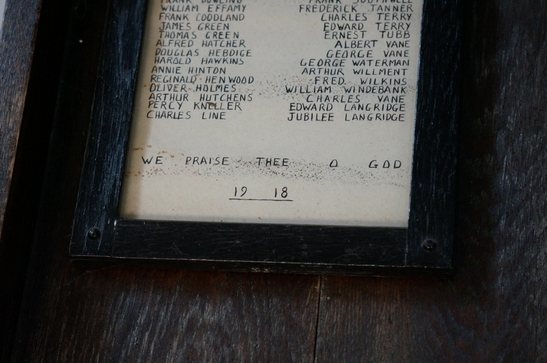 FRANK SOUTHWELL
WILLIAM EFFAMY FREDERICK TANNER
FRANK GOODLAND CHARLES TERRY
JAMES GREEN EDWARD TERRY
THOMAS GREEN ERNEST TUBB
ALFRED HATCHER ALBERT VANE
DOUGLAS HEBDIGE GEORGE VANE
HAROLD HAWKINS GEORGE WATERMAN
ANNIE HINTON ARTHUR WILLMENT
REGINALD HENWOOD FRED. WILKINS
OLIVER HOLMES WILLIAM WINDEBANK
ARTHUR HUTCHENS CHARLES VANE
PERCY KNELLER EDWARD LANGRIDGE
CHARLES LINE JUBILEE LANGRIDGE
WE PRAISE THEE O GOD
19 18